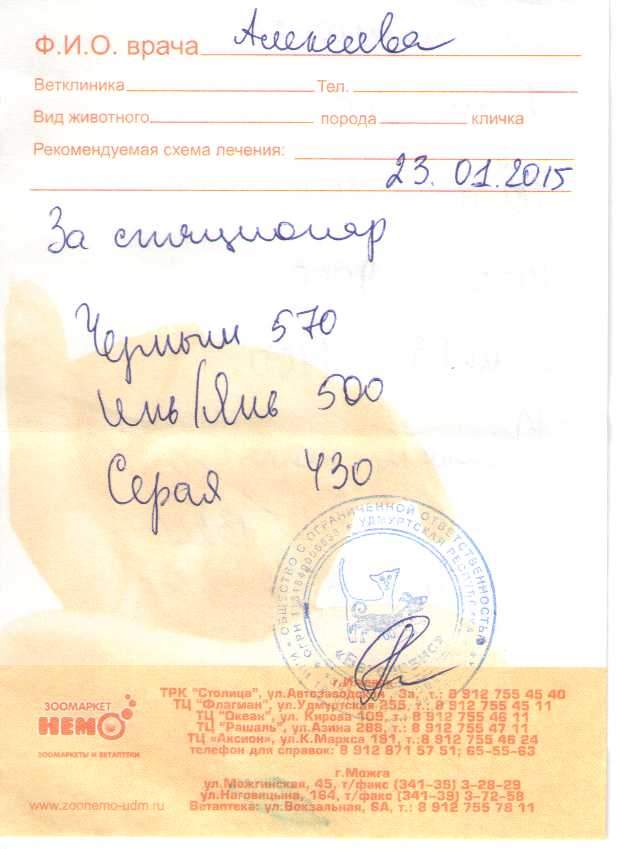 Ф.И.О. врача Алексеева
Ветклиника Тел.
Вид животного порода кличка
Рекомендуемая схема лечения:
23.01.2015
За стационар
Черныш 570
Инь/Янь 500
Серая 430
ОБЩЕСТВО С ОГРАНИЧЕННОЙ ОТВЕТСТВЕННОСТЬЮ
УДМУРТСКАЯ РЕСПУБЛИКА
ОГРН
ЗООМАРКЕТ
НЕМО
ЗООМАРКЕТЫ И ВЕТАПТЕКИ
www.zoonemo-udm.ru
ТРК "Столица", ул.Автозаводская, 3а, т.: 8 912 755 45 40
ТЦ "Флагман", ул.Удмуртская 255, т.: 8 912 755 45 11
ТЦ "Океан", ул. Кирова 109, т.: 8 912 755 46 11
ТЦ "Рашаль", ул.Азина 288, т.: 8 912 755 47 11
ТЦ «Аксион», ул.К.Маркса 191, т.: 8 912 755 46 24
телефон для справок: 8 912 871 57 51; 65-55-63
г.Можга
ул.Можгинская, 45, т/факс (341-39) 3-28-29
ул.Наговицына, 164, т/факс (341-39) 3-72-58
Ветаптека: ул.Вокзальная, 6А, т.: 8 912 755 78 11